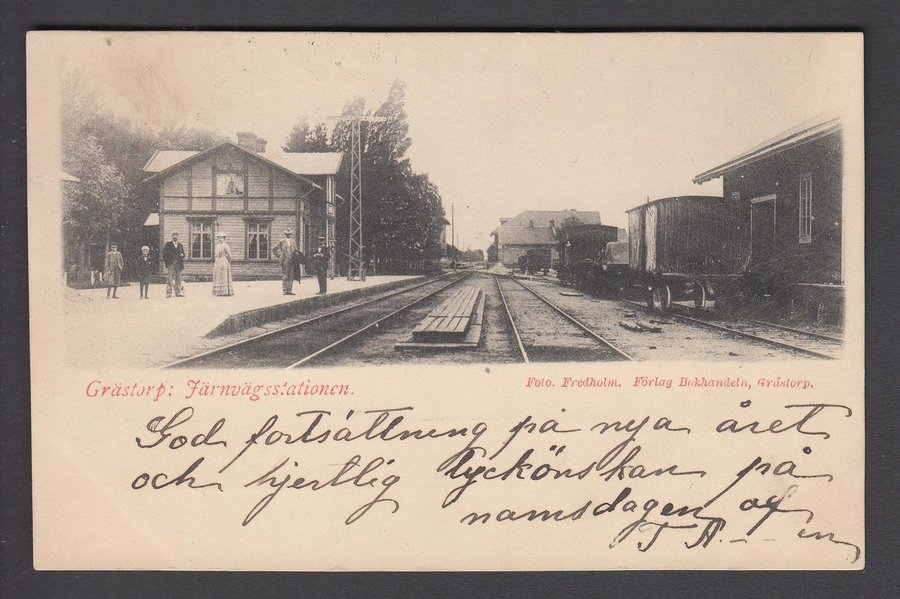 Grästorp: Järnvägsstationen.
Foto. Fredholm. Förlag Bokhandeln, Grästorp.
God fortsättning på nya året
och hjertlig lyckönskan på
namsdagen af
T A. - - n